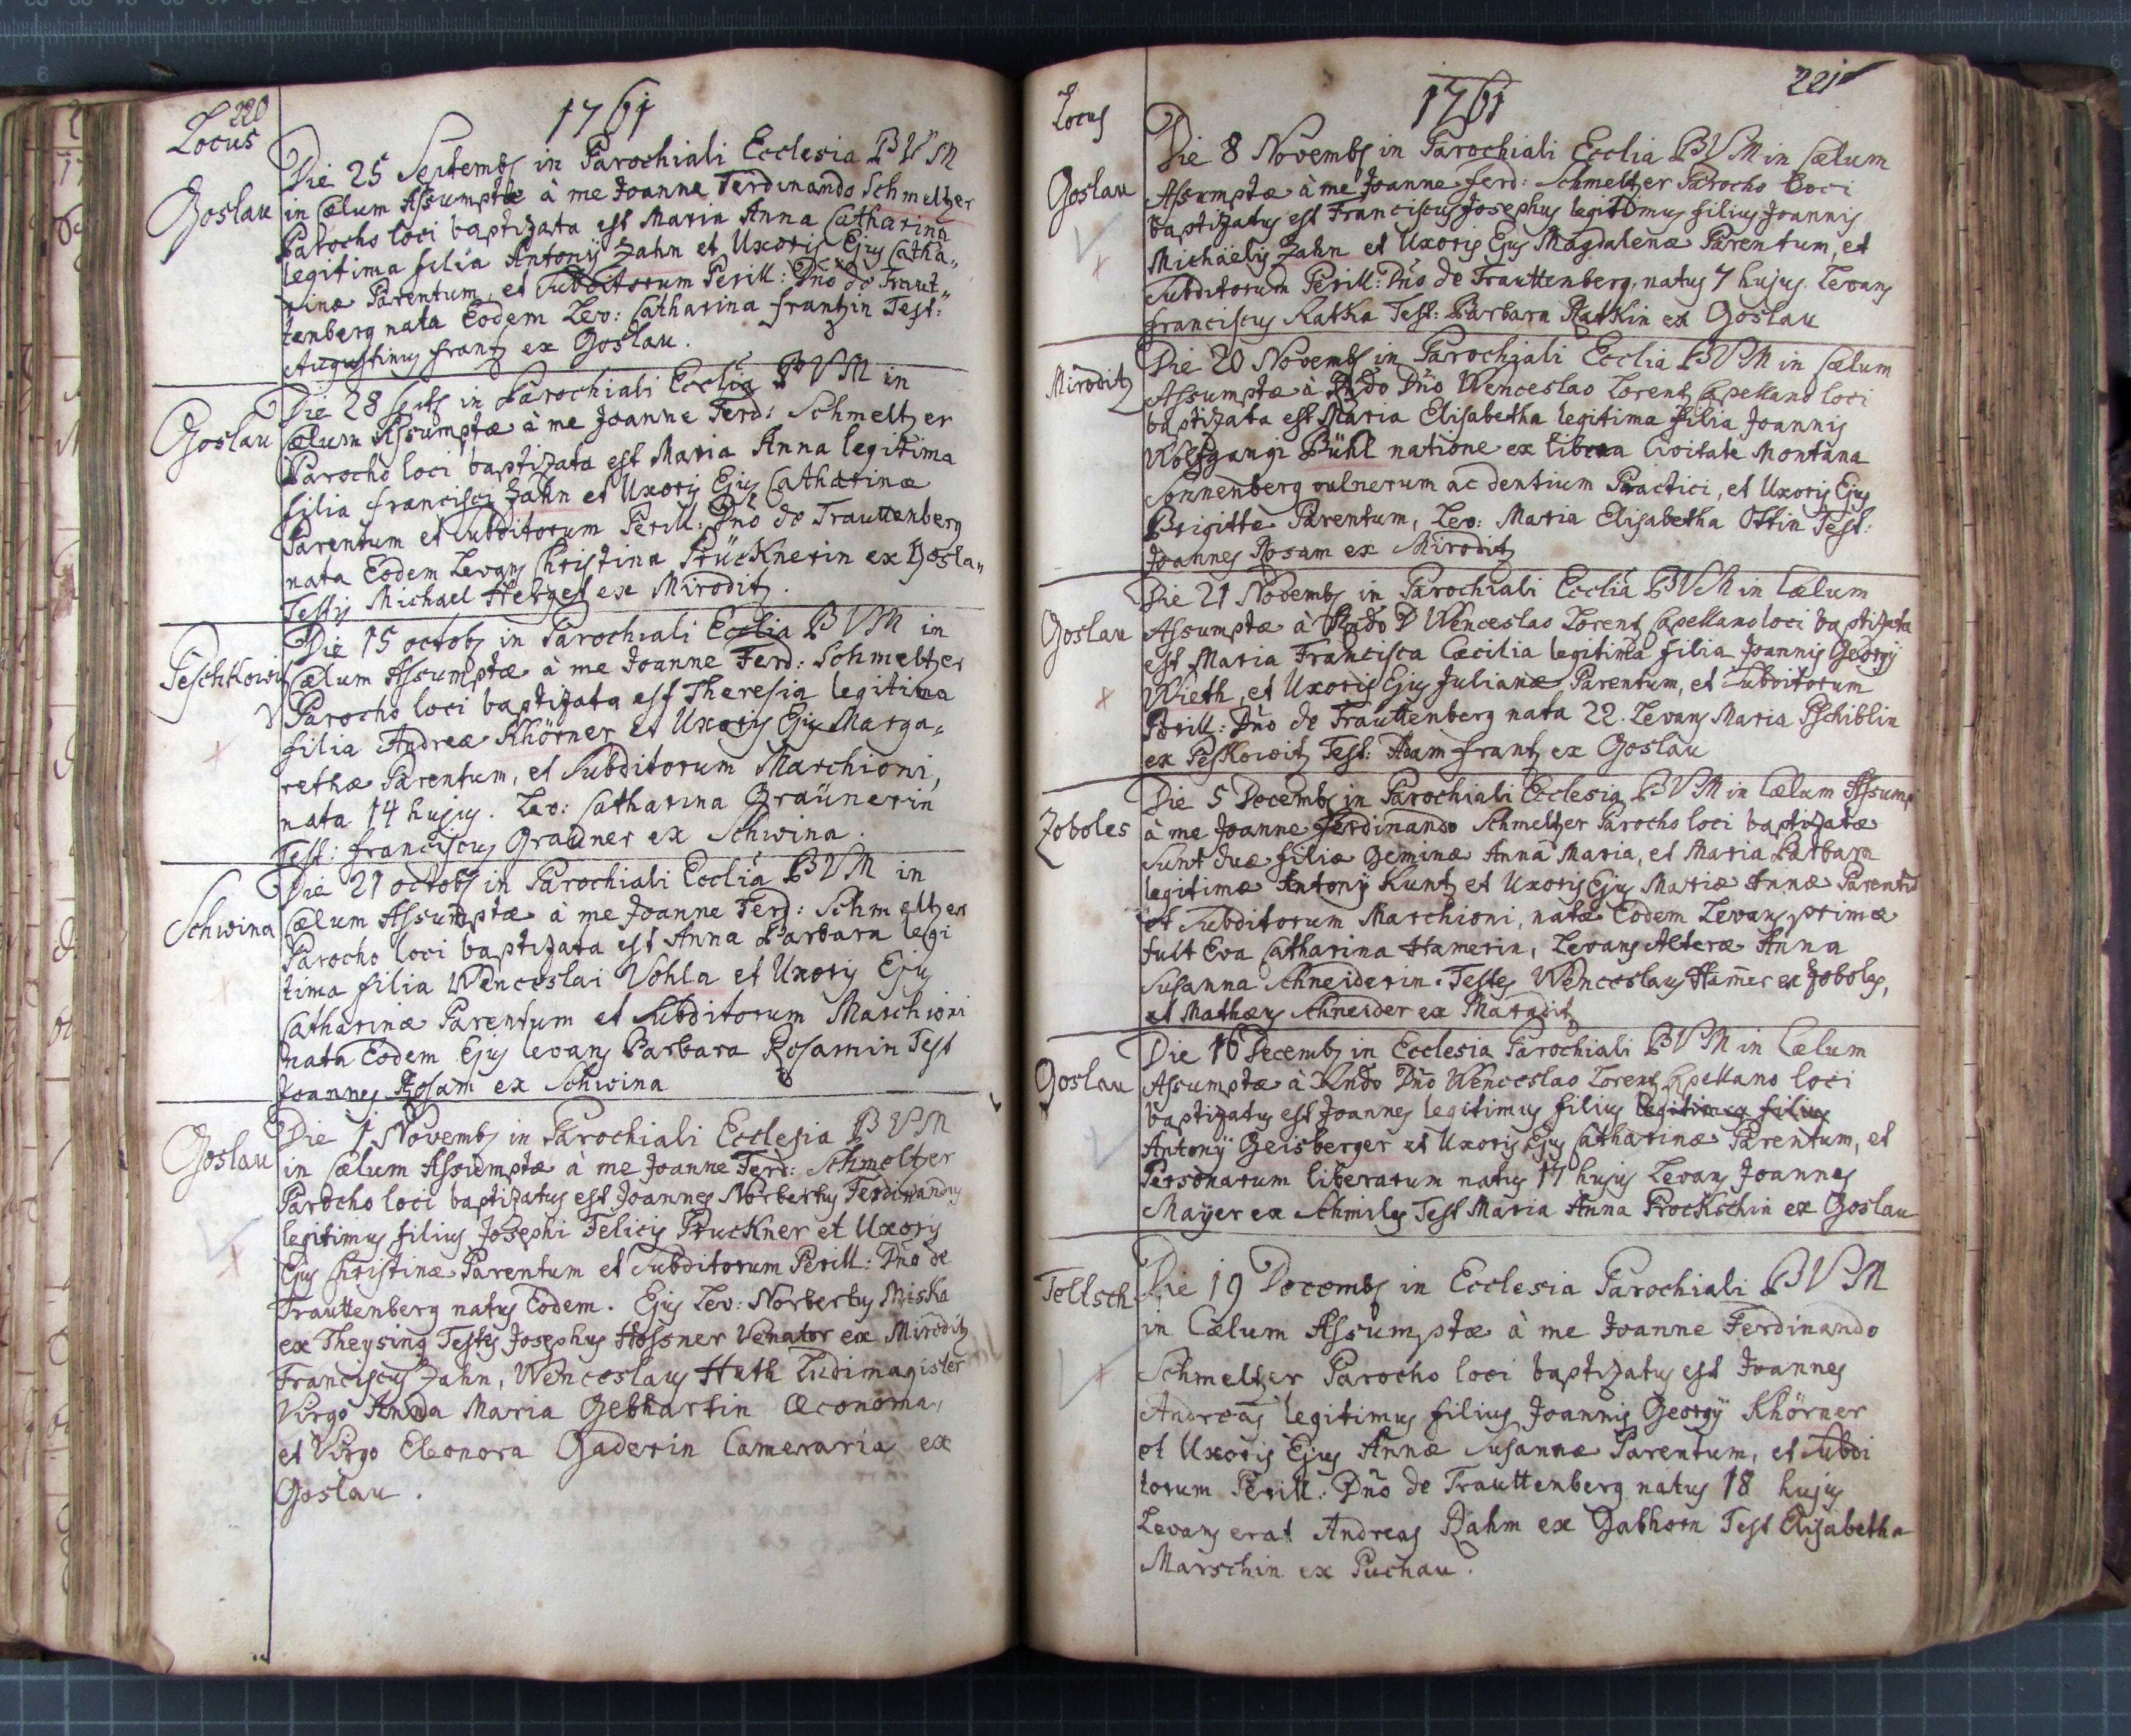 220
Locus
1761
Goslau
Die 25 Septembs in Parochiali Ecclesia BVM
in Cælum Assumptæ à me Joanne Ferdinando Schmeltzer
Parocho loci baptizata est Maria Anna Catharina
legitima filia Antonij Zahn et Uxoris Ejus Catha„
rinæ Parentum, et Subditorum Perill: Dno de Traut„
tenberg nata Eodem Lev: Catharina Frantzin Test:
Augustinus Frantz ex Goslau.
Goslau
Die 28 in Parochiali Ecclia BVM in
Cælum Assumptæ à me Joanne Ferd: Schmeltzer
Parocho loci baptizata est Maria Anna legitima
filia Francisci Zahn et Uxoris Ejus Catharinæ
Parentum et Subditorum Perill: Dno de Trauttenberg
nata Eodem Levans Christina Prücknerin ex Gosla„
Testis Michael Herget ex Miroditz.
Peschkowitz
Die 15 octobs in Parochiali Ecclia BVM in
Cælum Assumptæ à me Joanne Ferd: Schmeltzer
Parocho loci baptizata est Theresia legitima
filia Andreæ Khörner et Uxoris Ejus Marga„
rethæ Parentum, et Subditorum Marchioni,
nata 14 hujus. Lev: Catharina Graünerin
Test: Franciscus Grauner ex Schwina.
Schwina
Die 21 octobs in Parochiali Ecclia BVM in
Cælum Assumptæ à me Joanne Ferd: Schmeltzer
Parocho loci baptizata est Anna Barbara legi
tima filia Wenceslai Vohla et Uxoris Ejus
Catharinæ Parentum et Subditorum Marchioni
nata Eodem Ejus levans Barbara Rosamin Test
Joannes Rosam ex Schwina
Goslau
Die 1 Novembs in Parochiali Ecclesia BVM
in Cælum Assumptæ à me Joanne Ferd: Schmeltzer
Parocho loci baptizatus est Joannes Norbertus Ferdinandus
legitimus filius Josephi Felicis Pruckner et Uxoris
Ejus Christinæ Parentum et Subditorum Perill: Dno de
Trauttenberg natus Eodem. Ejus Lev: Norbertus Miska
ex Theysing Testes Josephus Hossner Venator ex Miroditz
Franciscus Zahn, Wenceslaus Huth Ludimagister
Virgo Anna Maria Gebhartin Œconoma,
et Virgo Eleonora Gaderin Cameraria ex
Goslau.
221
Locus
1761
Goslau
Die 8 Novembs in Parochiali Ecclia BVM in Cælum
Assumptæ à me Joanne Ferd: Schmeltzer Parocho loci
baptizatus est Franciscus Josephus legitimus filius Joannis
Michaëlis Zahn et Uxoris Ejus Magdalenæ Parentum, et
Subditorum Perill: Dno de Trauttenberg, natus 7 hujus. Levans
Franciscus Ratka Test: Barbara Ratkin ex Goslau
Miroditz
Die 20 Novembs in Parochiali Ecclia BVM in Cælum
Assumptæ à Rndo Dno Wenceslao Lorentz Capellano loci
baptizata est Maria Elisabetha legitima filia Joannis
Wolfgangi Bühl natione ex libera Civitate Montana
Sonnenberg vulnerum ac dentium Practici, et Uxoris Ejus
Brigittæ Parentum, Lev: Maria Elisabetha Ottin Test:
Joannes Rosam ex Miroditz
Goslau
Die 21 Novembs in Parochiali Ecclia BVM in Cælum
Assumptæ à Rndo D Wenceslao Lorentz Capellano loci baptizata
est Maria Francisca Cæcilia legitima filia Joannis Georgij
Wieth, et Uxoris Ejus Julianæ Parentum, et Subditorum
Perill: Dno de Trauttenberg nata 22. Levans Maria Pschiblin
ex Peskowitz Test: Adam Frantz ex Goslau
Zoboles
Die 5 Decembs in Parochiali Ecclesia BVM in Cælum Assump
à me Joanne Ferdinando Schmeltzer Parocho loci baptizatæ
Sunt duæ filiæ Geminæ Anna Maria, et Maria Barbara
legitimæ Antonij Kuntz et Uxoris Ejus Mariæ Annæ Parentū
et Subditorum Marchioni, natæ Eodem Levans primæ
fuit Eva Catharina Hamerin, Levans Alteræ Anna
Susanna Schneiderin. Testes Wenceslaus Ham̄er ex Zoboles,
et Mathæus Schneider ex Maroditz
Goslau
Die 16 Decembs in Ecclesia Parochiali BVM in Cælum
Assumptæ à Rndo Dno Wenceslao Lorentz Capellano loci
baptizatus est Joannes legitimus filius legitimus filius
Antonij Geisberger et Uxoris Ejus Catharinæ Parentum, et
Personarum liberarum natus 17 hujus Levans Joannes
Mayer ex Schmiles Test Maria Anna Prockschin ex Goslau
Toltsch
Die 19 Decembs in Ecclesia Parochiali BVM
in Cælum Assumptæ à me Joanne Ferdinando
Schmeltzer Parocho loci baptizatus est Joannes
Andreas legitimus filius Joannis Georgij Khörner
et Uxoris Ejus Annæ Susannæ Parentum, et Subdi
torum Perill: Dno de Trauttenberg natus 18 hujus
Levans erat Andreas Rahm ex Gabhorn Test Elisabetha
Marschin ex Puchau.